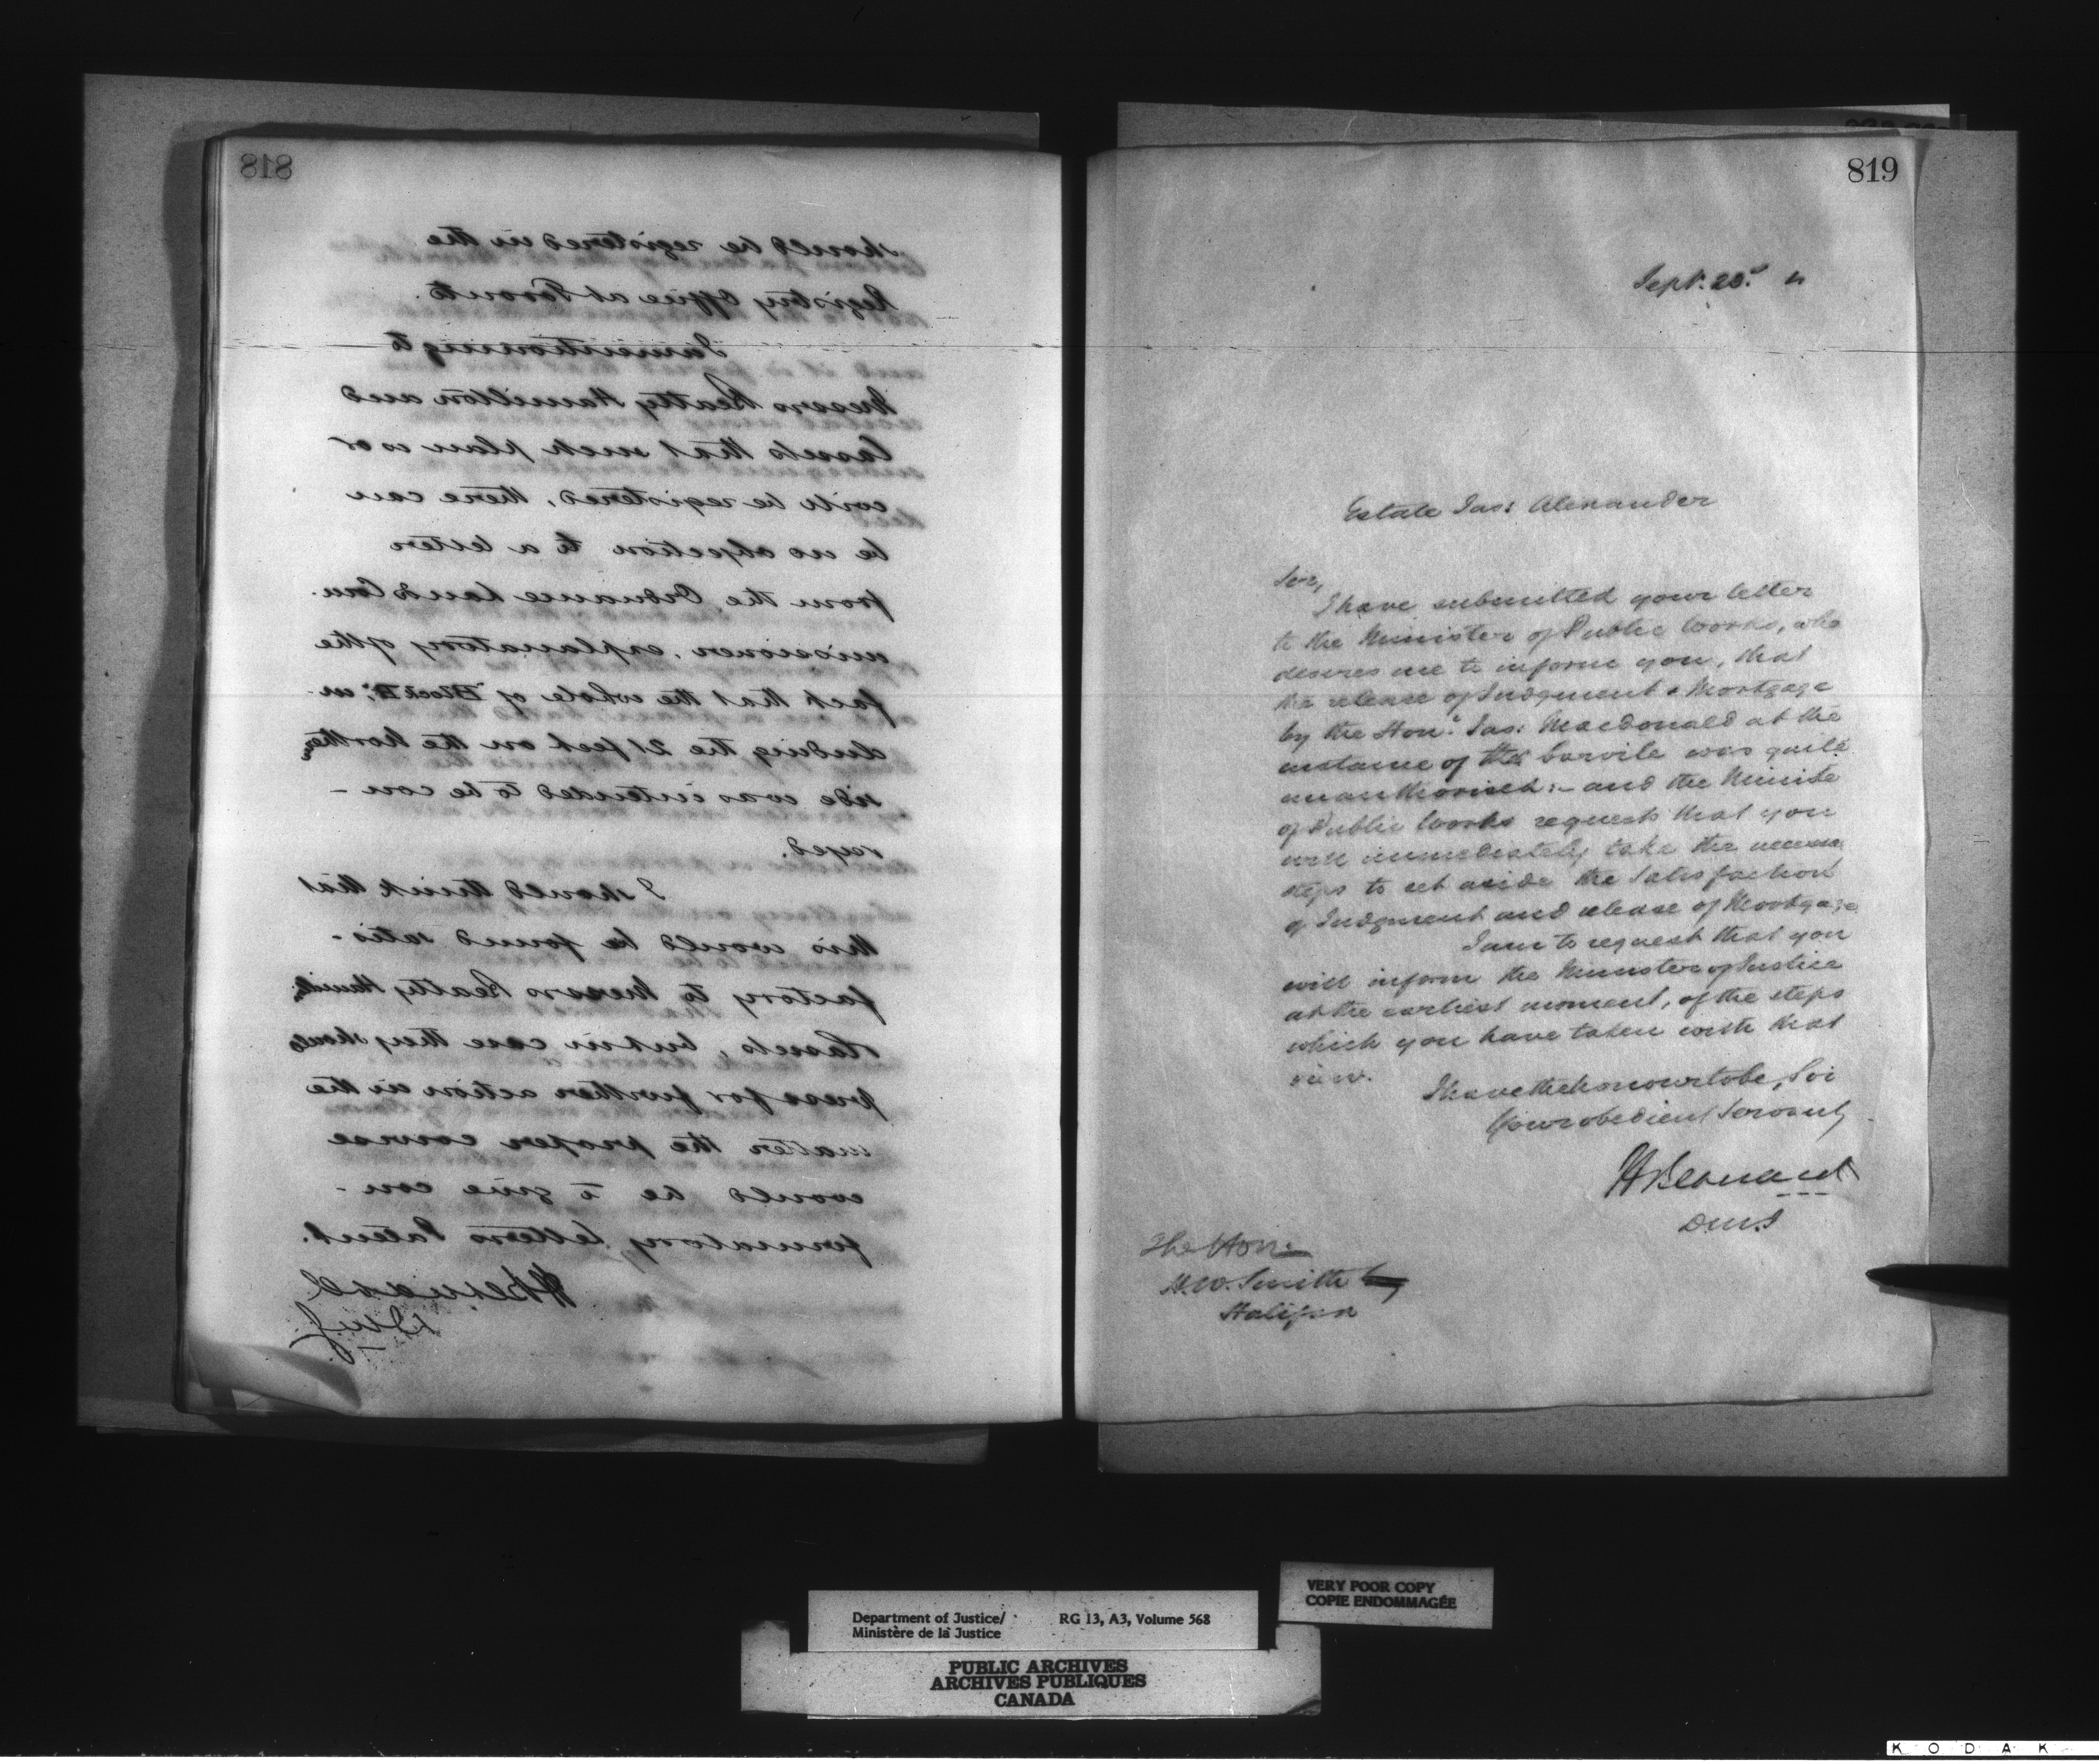 818
should be registered in the
Registry Office at Toronto.
I am intimating to
Messrs Beatty Hamilton and
Cassels that such plan is or
will be registered, there can
be no objection to a letter
from the Ordnance Lands Com-
missioner, explanatory of the
fact that the whole of "Block D", in-
cluding the 21 feet on the Northern
side was intended to be con-
veyed.
I should think that
this would be found satis-
factory to Messrs Beatty Hamil.
Cassels, but in case they should
press for further action in the
matter the proper course
would be to give con-
firmatory Letters Patent.
H Bernard
DMJ
819
Sept. 23d 4
Estate Jas: Alexander
Sir,
I have submitted your letter
to the Minister of Public Works, who
desires me to inform you, that
the release of Judgment & Mortgage
by the Hon: Jas: Macdonald at the
instance of was quite
unauthorised:- and the Ministe
of Public Works requests that you
will immediately take the necessa
steps to set aside the satisfaction
of Judgment and release of Mortgage
I am to request that you
will inform the Minister of Justice
at the earliest moment, of the steps
which you have taken with that
view.
I have the honour to be, Sir
Your obedient Servant,
H Bernard
DMJ
The Hon:
H.W. Smith
Halifax
Department of Justice/ RG 13, A3, Volume 568
Ministère de la Justice
VERY POOR COPY
COPIE ENDOMMAGÉE
PUBLIC ARCHIVES
ARCHIVES PUBLIQUES
CANADA
KODAK